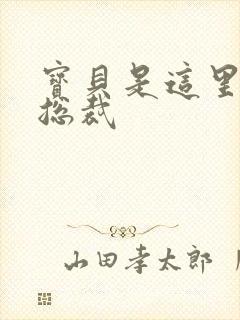 寶貝是這里
總裁
山田孝太郎